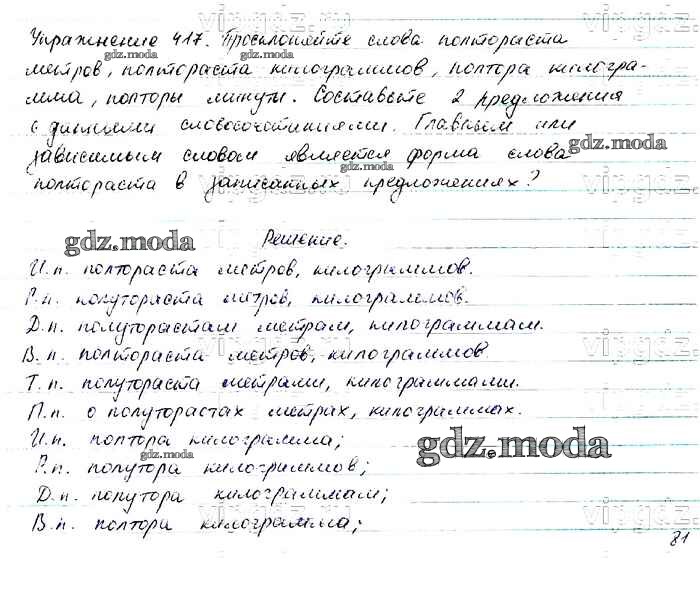 Упражнение 417. Просклоняйте слова полтораста
метров, полтораста килограммов, полтора килогра-
мма, полторы минуты. Составьте 2 предложения
с данными словосочетаниями. Главным или
зависимым словом является форма слова
полтораста в записанных предложениях?
gdz.moda
Решение.
И.п. полтораста метров, килограммов.
Р.п. полутораста метров, килограммов.
Д.п. полуторастам метрам, килограммам.
В.п. полтораста метров, килограммов
Т.п. полутораста метрами, килограммами.
П.п. о полуторастах метрах, килограммах.
И.п. полтора килограмма;
gdz.moda
Р.п. полутора килограммов;
Д.п. полутора килограммам;
В.п. полтора килограмма;
81